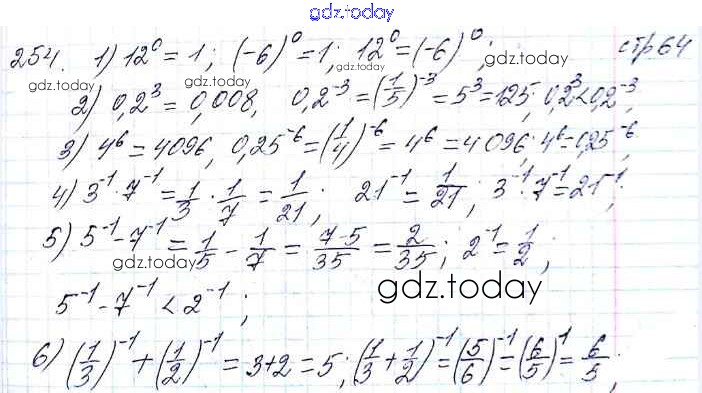 gdz.today
254. 1) 12⁰ = 1; (-6)⁰ = 1; 12⁰ = (-6)⁰; стр 64
gdz.today gdz.today gdz.today
2) 0,2³ = 0,008, 0,2⁻³ = (1/5)⁻³ = 5³ = 125; 0,2³ < 0,2⁻³,
3) 4⁶ = 4096, 0,25⁻⁶ = (1/4)⁻⁶ = 4⁶ = 4096; 4⁶ = 0,25⁻⁶;
4) 3⁻¹ · 7⁻¹ = 1/3 · 1/7 = 1/21; 21⁻¹ = 1/21; 3⁻¹ · 7⁻¹ = 21⁻¹;
5) 5⁻¹ - 7⁻¹ = 1/5 - 1/7 = 7-5/35 = 2/35; 2⁻¹ = 1/2;
gdz.today
gdz.today
5⁻¹ - 7⁻¹ < 2⁻¹;
6) (1/3)⁻¹ + (1/2)⁻¹ = 3+2 = 5; (1/3 + 1/2)⁻¹ = (5/6)⁻¹ = (6/5)¹ = 6/5;